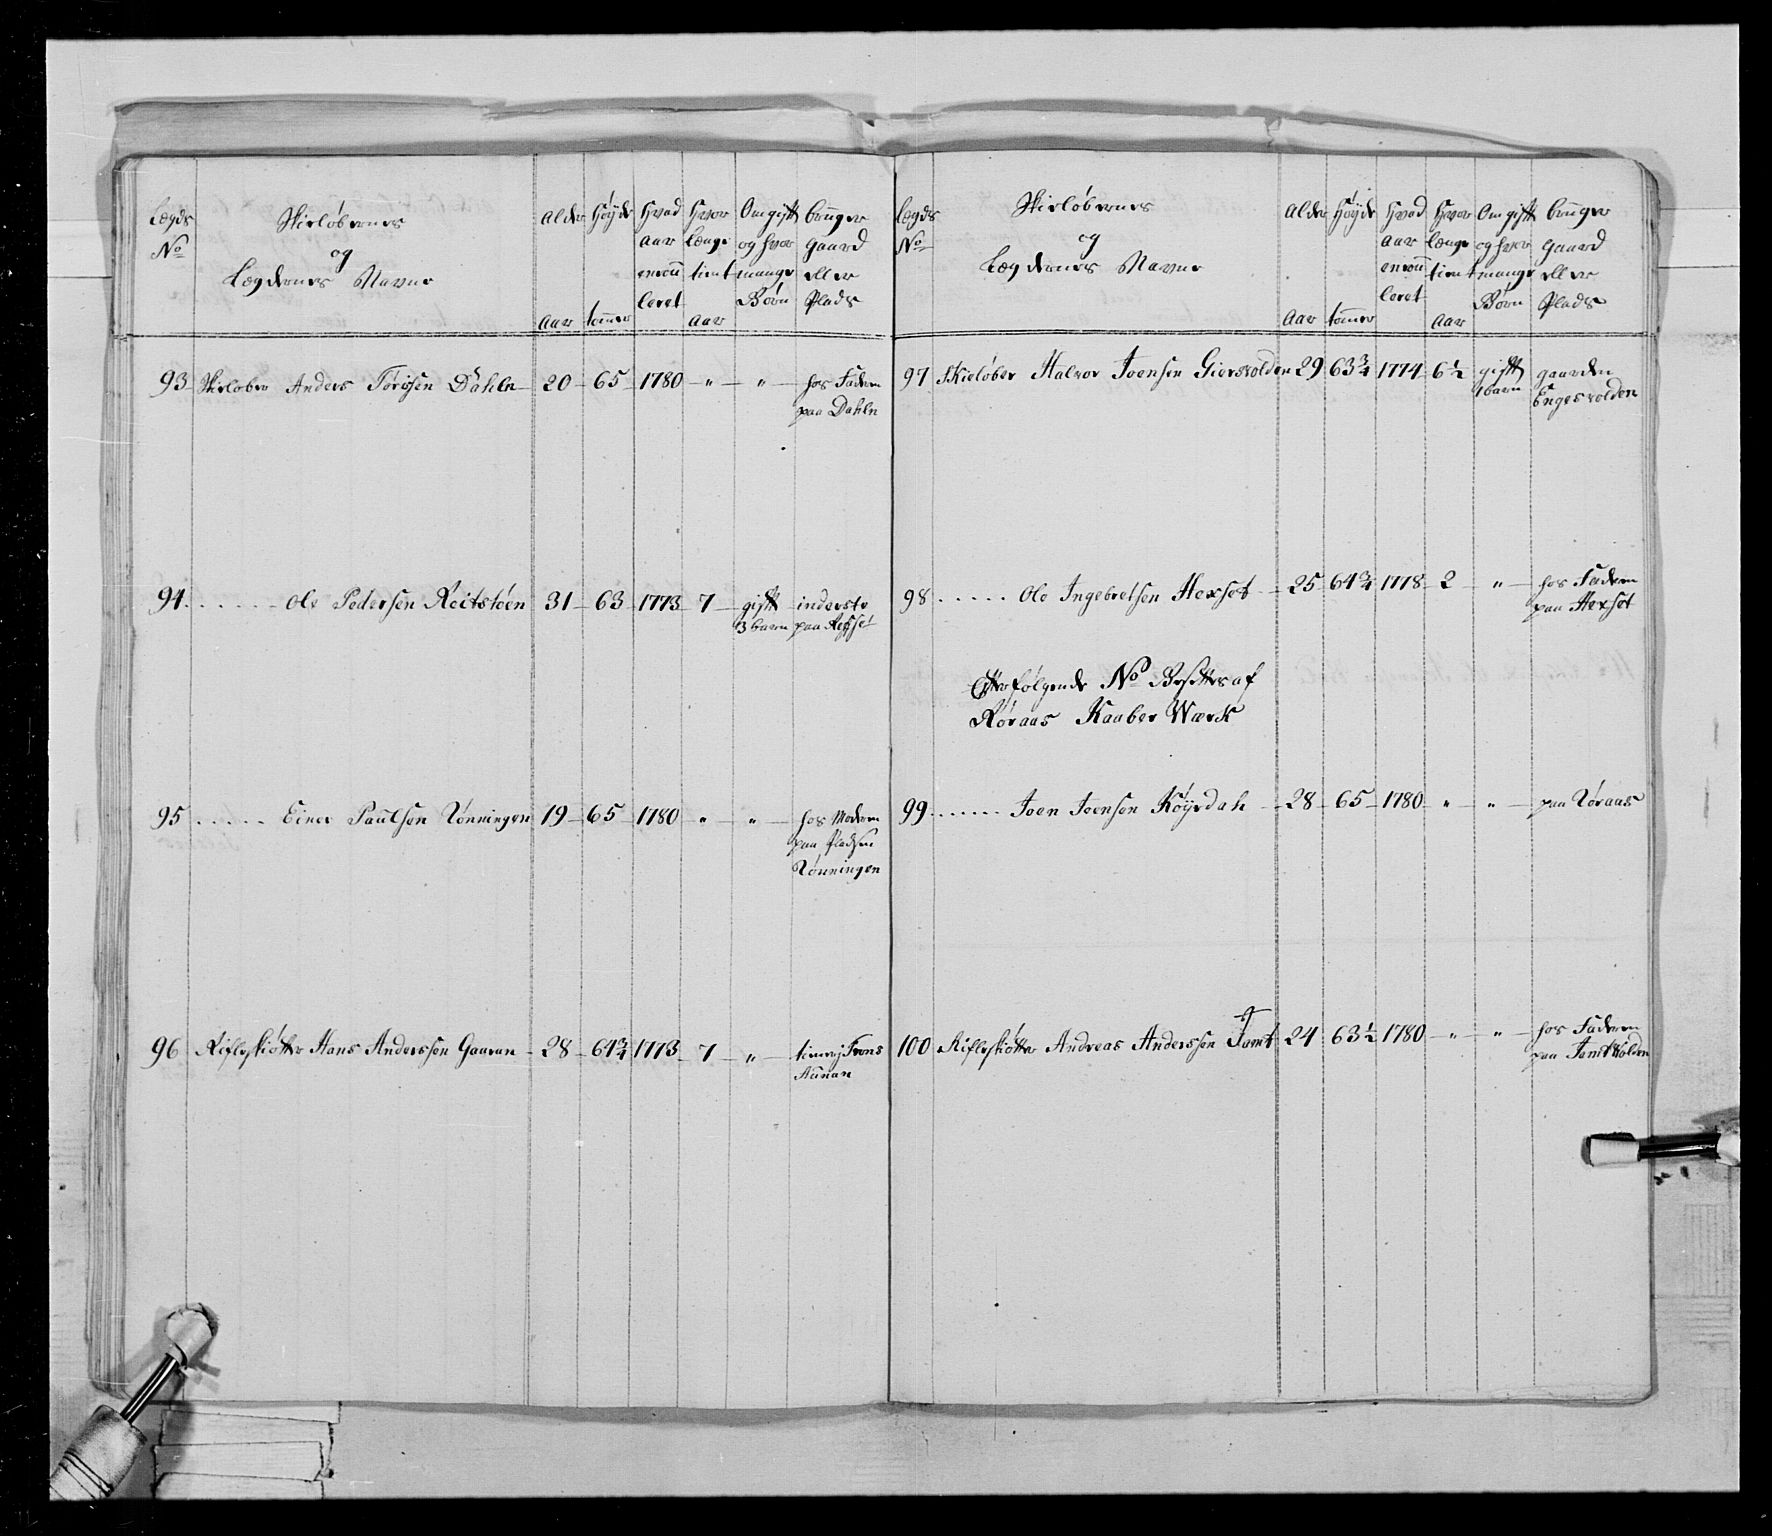 Lægds No | Skieløbernes og Lægdernes Navne | Alder Aar | Høyde tommer | Hvad Aar enroulleret | Hvor længe tient Aar | Om gift og hvor mange Børn | bruger Gaard eller Plads
93 | Skieløber Anders Torigsen Dahle | 20 | 65 | 1780 | " | " | hos Faderen
paa Dahle
94 | ...... Ole Pedersen Reitstøen | 31 | 63 | 1773 | 7 | gift | inderste
3 barn | paa
95 | ..... Einer Paulsen Rønningen | 19 | 65 | 1780 | " | " | hos Moderen
paa Pladsen
Rønningen
96 | Rifleskiøtter Hans Anderssen Gaaran | 28 | 64 3/4 | 1773 | 7 | " | Aunan
Lægds No | Skieløbernes og Lægdernes Navne | Alder Aar | Høyde tommer | Hvad Aar enroulleret | Hvor længe tient Aar | Om gift og hvor mange Børn | bruger Gaard eller Plads
97 | Skieløber Halvor Joensen Giersvolden | 29 | 63 3/4 | 1774 | 6 1/2 | gift | gaarden
1 barn | Engesvolden
98 | ..... Ole Ingebretsen Hexset | 25 | 64 3/4 | 1778 | 2 | " | hos Faderen
paa Hexset
Efterfølgende No Besættes af
Røraas Kaaber Værk
99 | ...... Joen Joensen Køyrdah | 28 | 65 | 1780 | " | " | paa Røraas
100 | Rifleskiøtter Andreas Anderssen Jamt | 24 | 63 1/2 | 1780 | " | " | hos Faderen
paa Jamtvolden